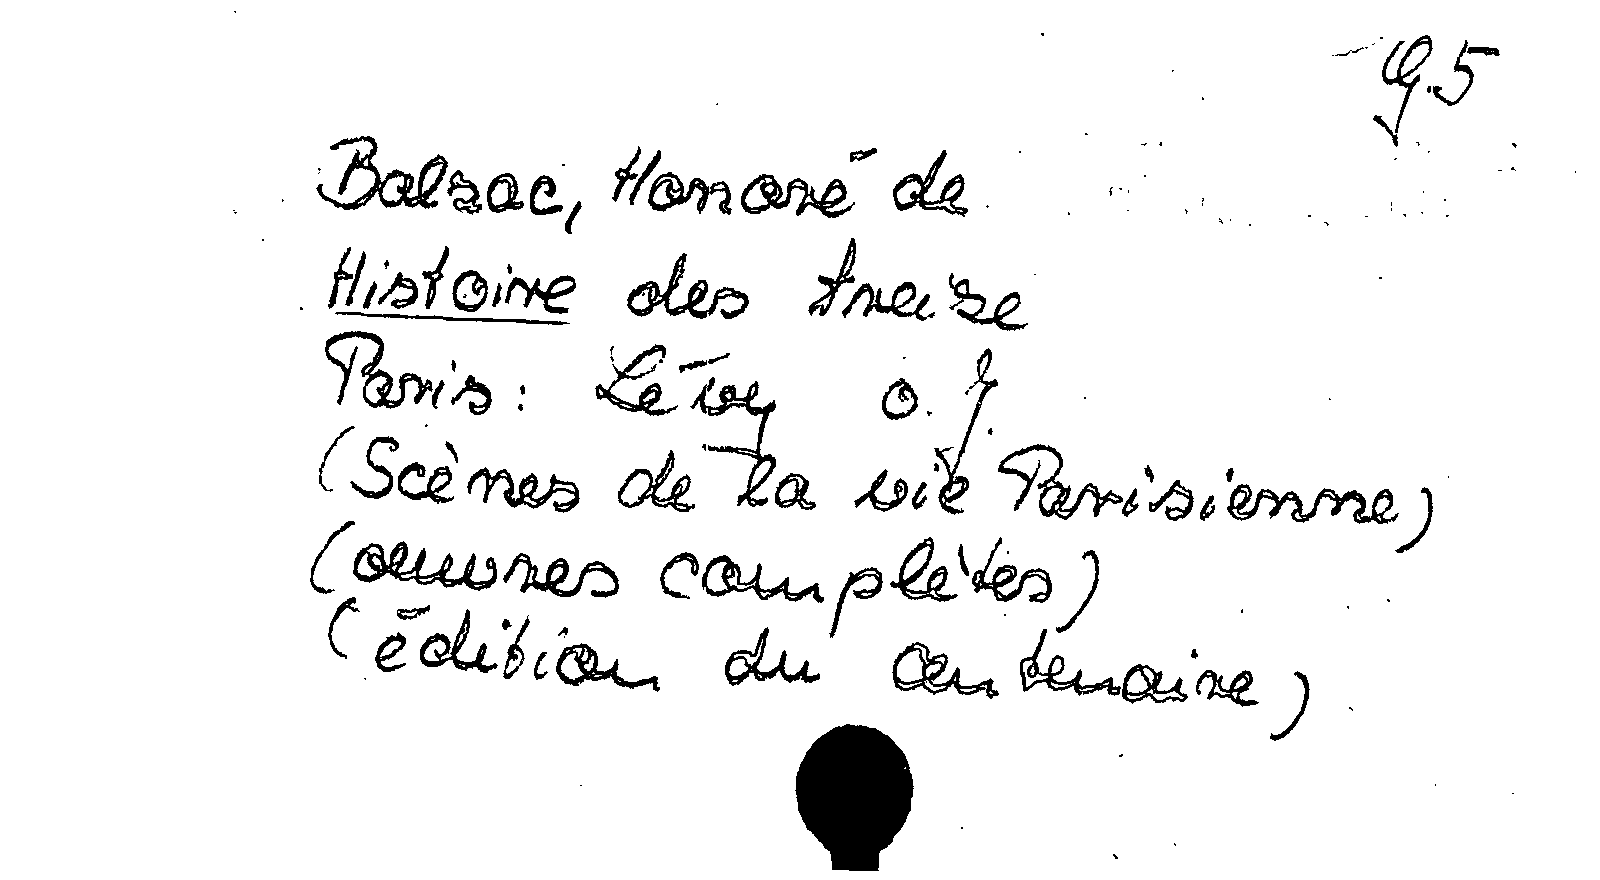 G.5
Balzac, Honoré de
Histoire des treize
Paris: Lévy o. J.
(Scènes de la vie Parisienne)
(œuvres complètes)
(édition du centenaire)